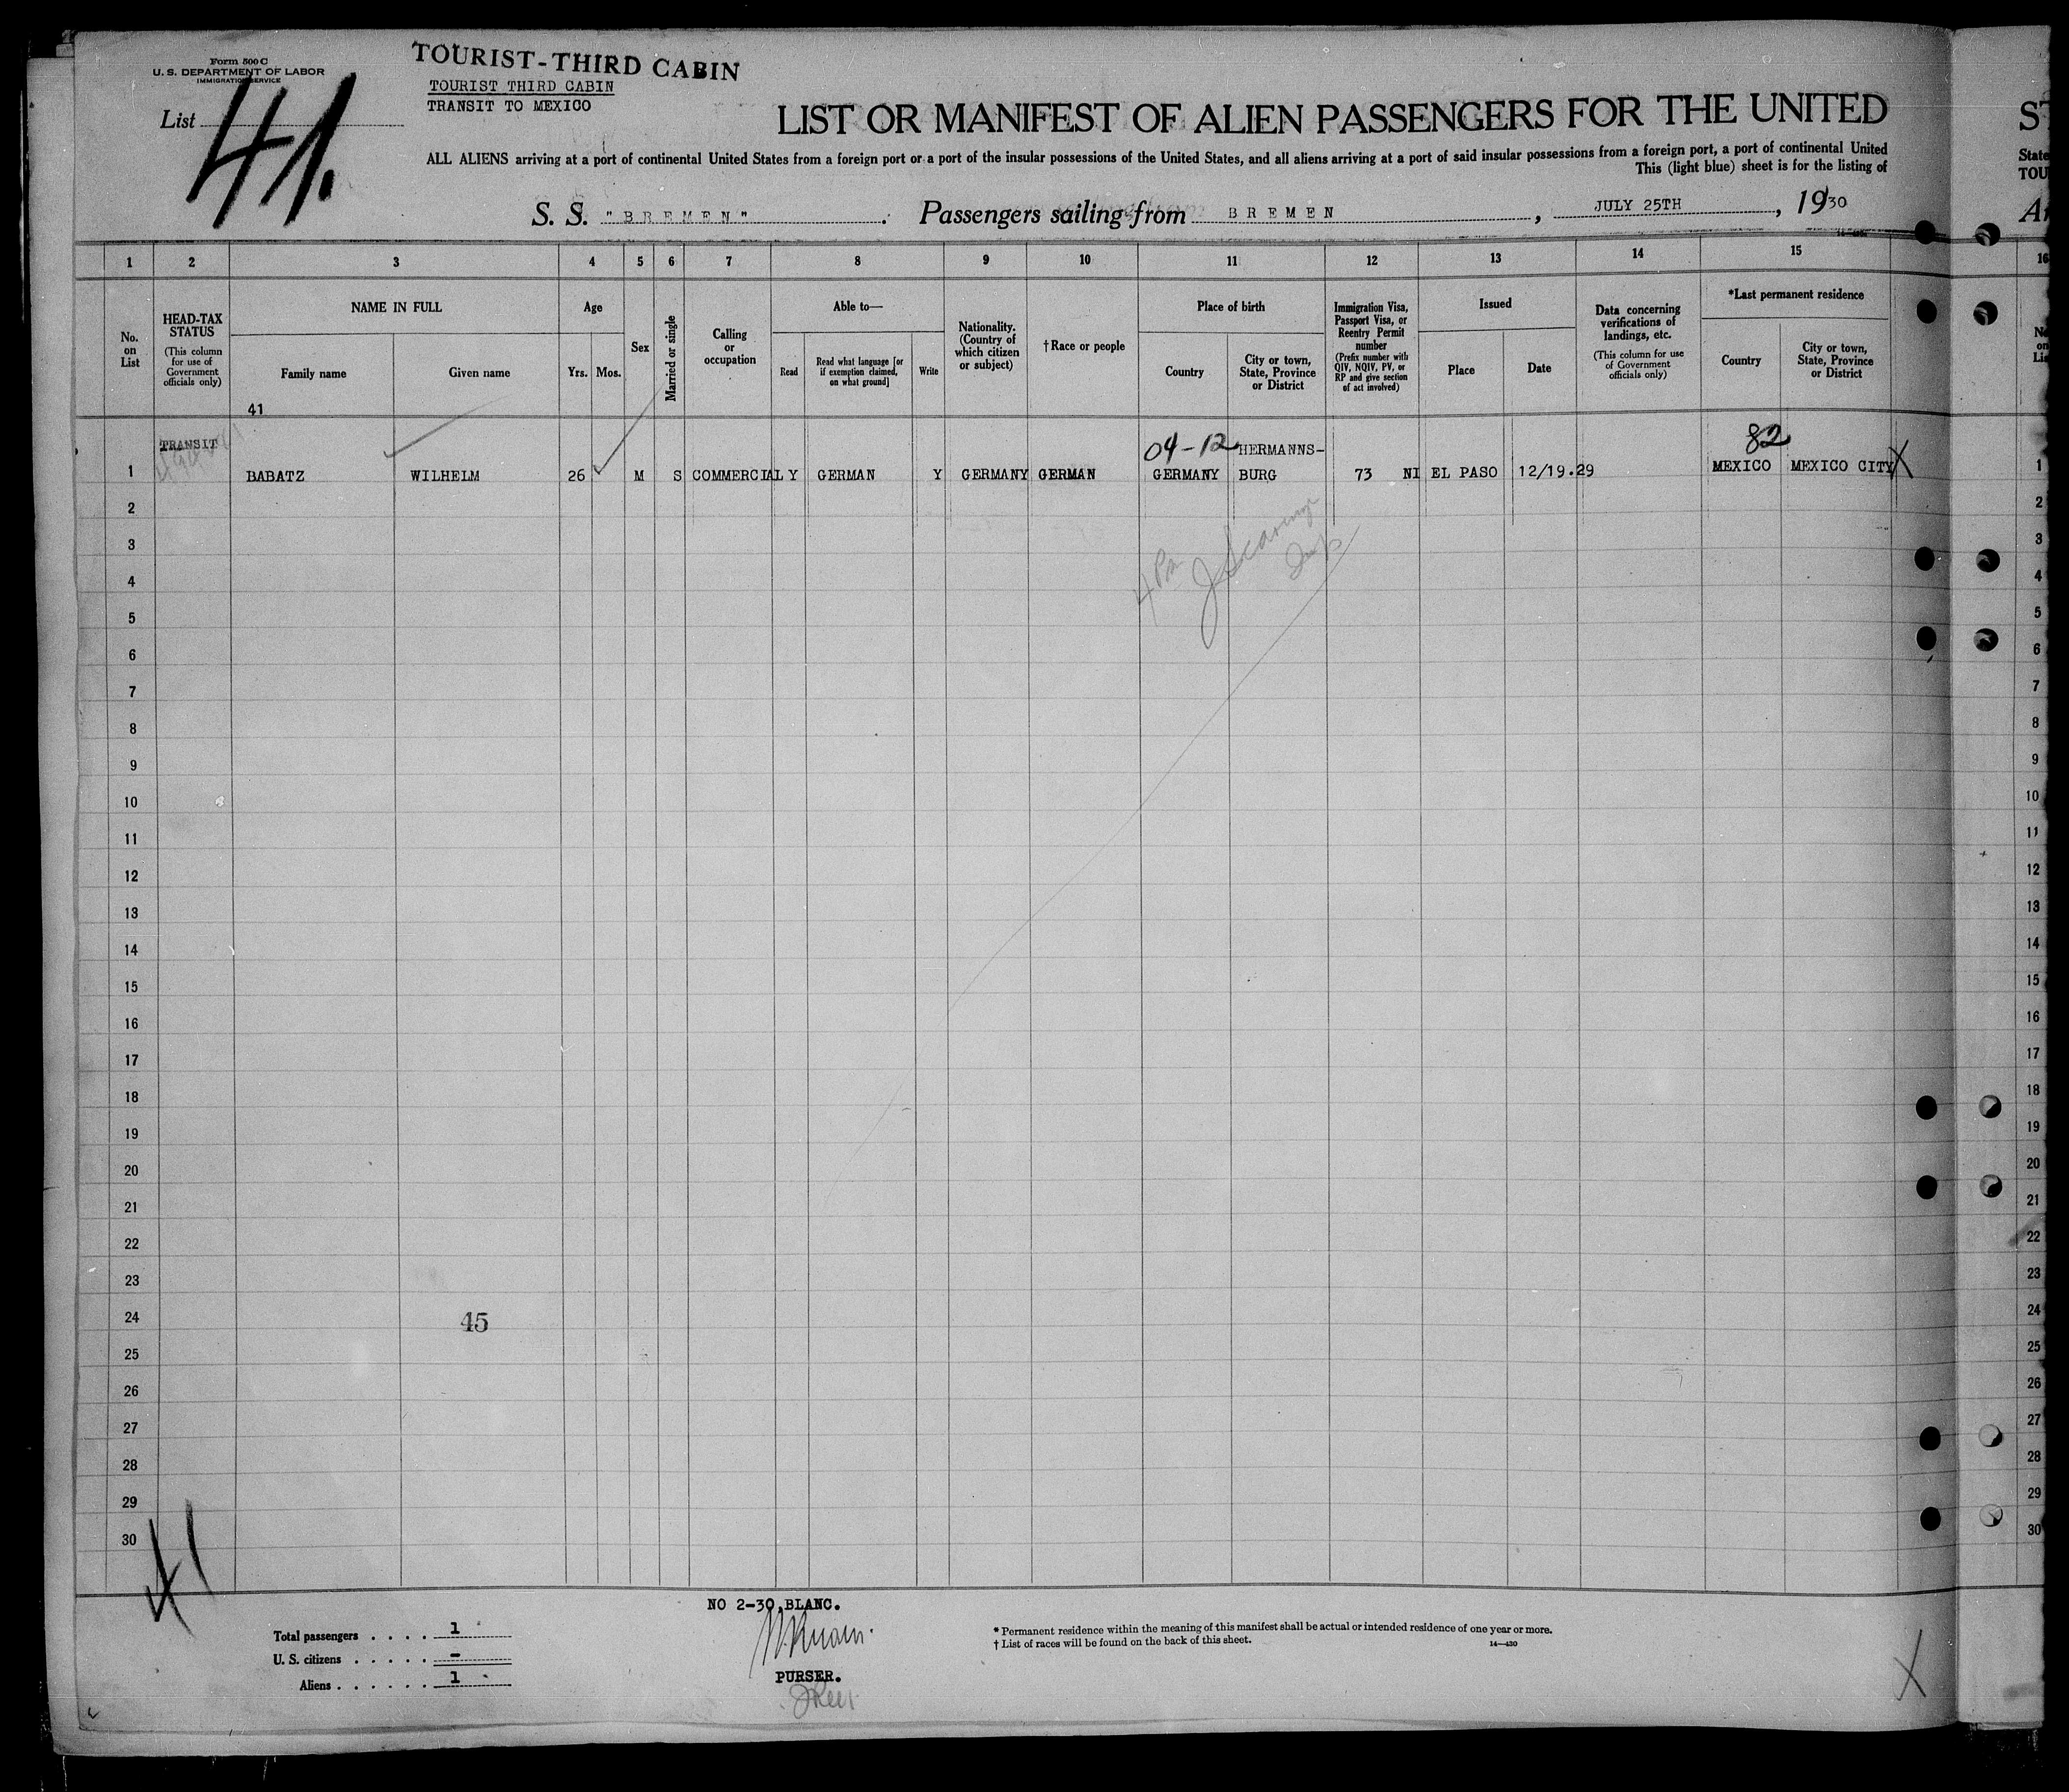 Form 500 C
U. S. DEPARTMENT OF LABOR
IMMIGRATION SERVICE
List 41.
TOURIST-THIRD CABIN
TOURIST THIRD CABIN
TRANSIT TO MEXICO
LIST OR MANIFEST OF ALIEN PASSENGERS FOR THE UNITED
ALL ALIENS arriving at a port of continental United States from a foreign port or a port of the insular possessions of the United States, and all aliens arriving at a port of said insular possessions from a foreign port, a port of continental United
This (light blue) sheet is for the listing of
S. S. "BREMEN". Passengers sailing from BREMEN, JULY 25TH, 1930
ST
State
TOU
1 2 3 4 5 6 7 8 9 10 11 12 13 14 15 16
No. on List
HEAD-TAX STATUS
(This column for use of Government officials only)
NAME IN FULL
Family name
Given name
Age
Yrs. Mos.
Sex
Married or single
Calling or occupation
Able to—
Read
Read what language [or if exemption claimed, on what ground]
Write
Nationality. (Country of which citizen or subject)
†Race or people
Place of birth
Country
City or town, State, Province or District
Immigration Visa, Passport Visa, or Reentry Permit number
(Prefix number with QIV, NQIV, PV, or RP and give section of act involved)
Issued
Place
Date
Data concerning verifications of landings, etc.
(This column for use of Government officials only)
*Last permanent residence
Country
City or town, State, Province or District
41
TRANSIT 04-12 HERMANNS- 82
1 BABATZ WILHELM 26 M S COMMERCIAL Y GERMAN Y GERMANY GERMAN GERMANY BURG 73 NI EL PASO 12/19.29 MEXICO MEXICO CITY X 1
2 2
3 3
4 4
5 5
6 6
7 7
8 8
9 9
10 10
11 11
12 12
13 13
14 14
15 15
16 16
17 17
18 18
19 19
20 20
21 21
22 22
23 23
24 45 24
25 25
26 26
27 27
28 28
29 29
30 30
41
NO 2-30 BLANC.
Total passengers . . . . 1
U. S. citizens . . . . . -
Aliens . . . . . . 1
PURSER.
* Permanent residence within the meaning of this manifest shall be actual or intended residence of one year or more.
† List of races will be found on the back of this sheet.
14—430
X